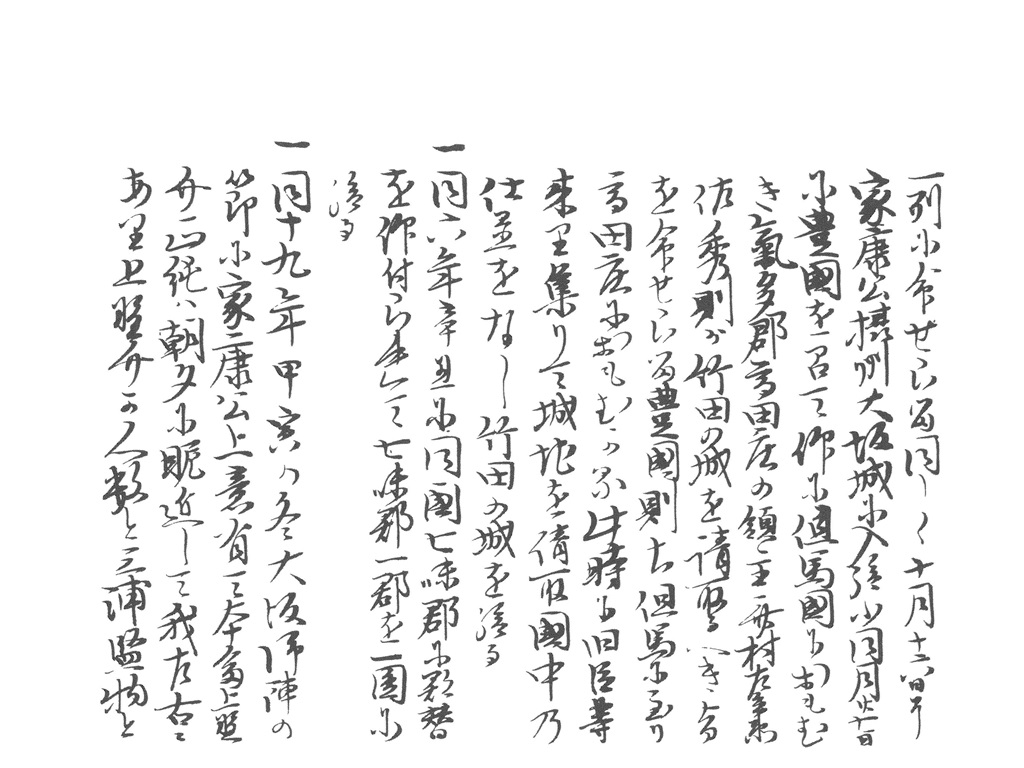 一列に命せらる同しく十月十六日
家康公摂州大坂城に入給ふ同月廿一日
に豊國を召て仰に但馬國におもむ
き氣多郡高田庄の領主斎村左兵衛
佐秀則が竹田の城を請取るへきよし
を命せらる豊國則ち但馬に至り
高田庄におもむか る 時に旧臣等
来里集りて城地を請取國中乃
仕置をなし竹田の城を給る
一同六年辛丑に同國七味郡に替
を仰付られて七味郡一郡を一圓に
給る
一同十九年甲寅の冬大坂御陣の
節に家康公上意有て本多上野
介正純ハ朝夕に昵近して我左右に
あり上野介の人数と三浦監物と